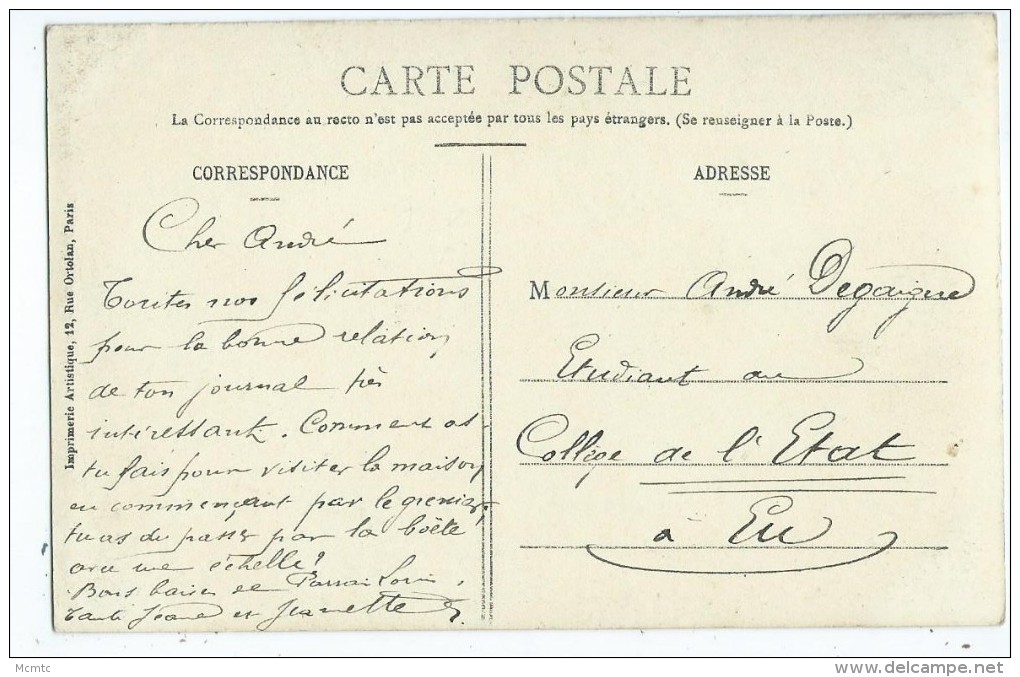 CARTE POSTALE
La Correspondance au recto n'est pas acceptée par tous les pays étrangers. (Se renseigner à la Poste.)
CORRESPONDANCE
Cher André
Toutes nos félicitations
pour la bonne relation
de ton journal très
intéressant. Comment as-
tu fais pour visiter la maison
en commençant par le grenier,
tu as du passer par la boête
avec une échelle?
Bons baisers de Parrain Louis,
Tante Jeane et Jeanette
ADRESSE
Monsieur André Degaigne
Etudiant au
Collège de l'Etat
à Eu
Imprimerie Artistique, 12, Rue Ortolan, Paris
Mcmtc
delcampe.net